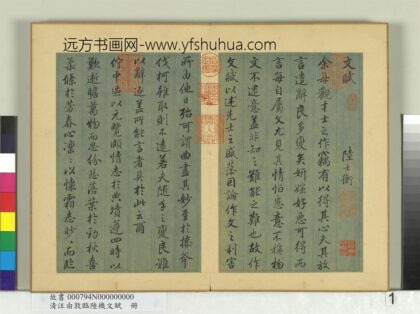 远方书画网-www.yfshuhua.com
文賦
陸士衡
余每觀才士之作竊有以得其心夫其放
言遣辭良多變矣妍蚩好惡可得而
言每自屬文尤見其情恒患意不稱物
文不逮意盖非知之難能之難也故作
文賦以述先士之盛藻因論作文之利害
所由他日殆可謂曲盡其妙至於操斧
伐柯雖取則不遠若夫隨手之變良難
以辭逐盖所能言者具於此云爾
佇中區以玄覽頤情志於典墳遵四時以
歎逝瞻萬物而思紛悲落葉於勁秋喜
柔條於芳春心凜〻以懷霜志眇〻而臨
故書 000794N000000000
清江由敦臨陸機文賦 冊
1